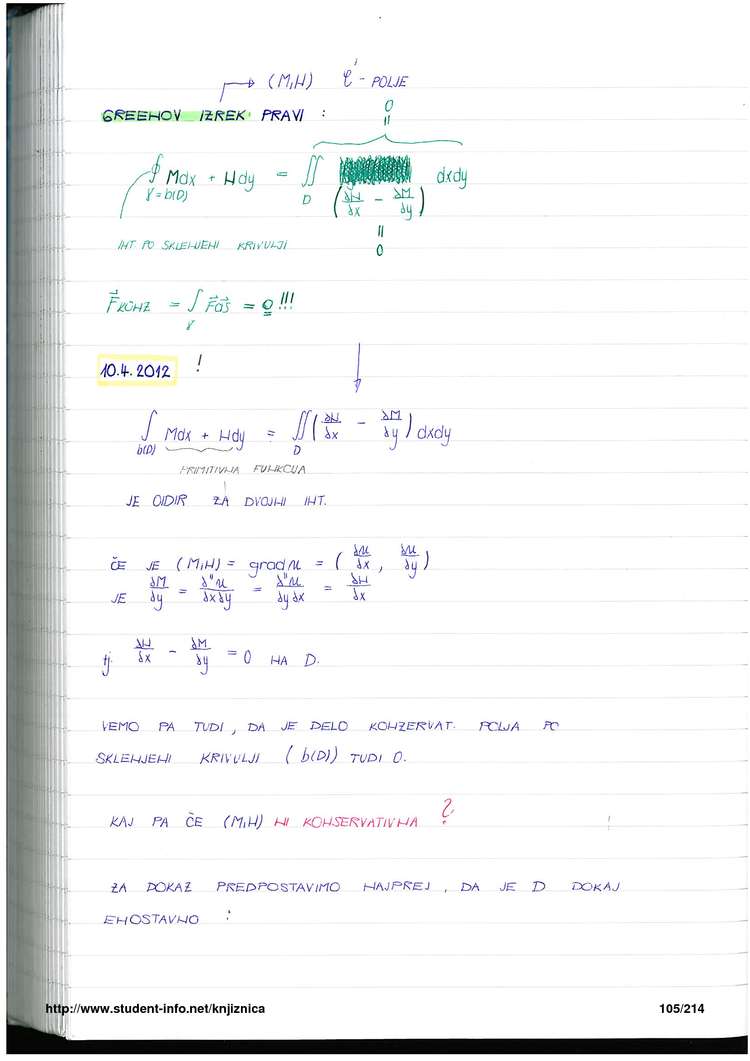 → (M,N) C' - POLJE
GREENOV IZREK PRAVI :
0
=
∮ Mdx + Ndy = ∬ dxdy
γ = b(D) D (∂N/∂x - ∂M/∂y)
=
0
INT PO SKLENJENI KRIVULJI
F⃗ KONZ = ∫ F⃗ds⃗ = 0 !!!
γ
10.4.2012 !
∫ Mdx + Ndy = ∬ (∂N/∂x - ∂M/∂y) dxdy
b(D) D
PRIMITIVNA FUNKCIJA
JE ODIR ZA DVOJNI INT.
ČE JE (M,N) = grad u = (∂u/∂x, ∂u/∂y)
JE ∂M/∂y = ∂''u/∂x∂y = ∂''u/∂y∂x = ∂N/∂x
tj. ∂N/∂x - ∂M/∂y = 0 NA D.
VEMO PA TUDI, DA JE DELO KONZERVAT. POLJA PO
SKLENJENI KRIVULJI (b(D)) TUDI 0.
KAJ PA ČE (M,N) NI KONSERVATIVNA ?
ZA DOKAZ PREDPOSTAVIMO NAJPREJ, DA JE D DOKAJ
ENOSTAVNO :
http://www.student-info.net/knjiznica 105/214